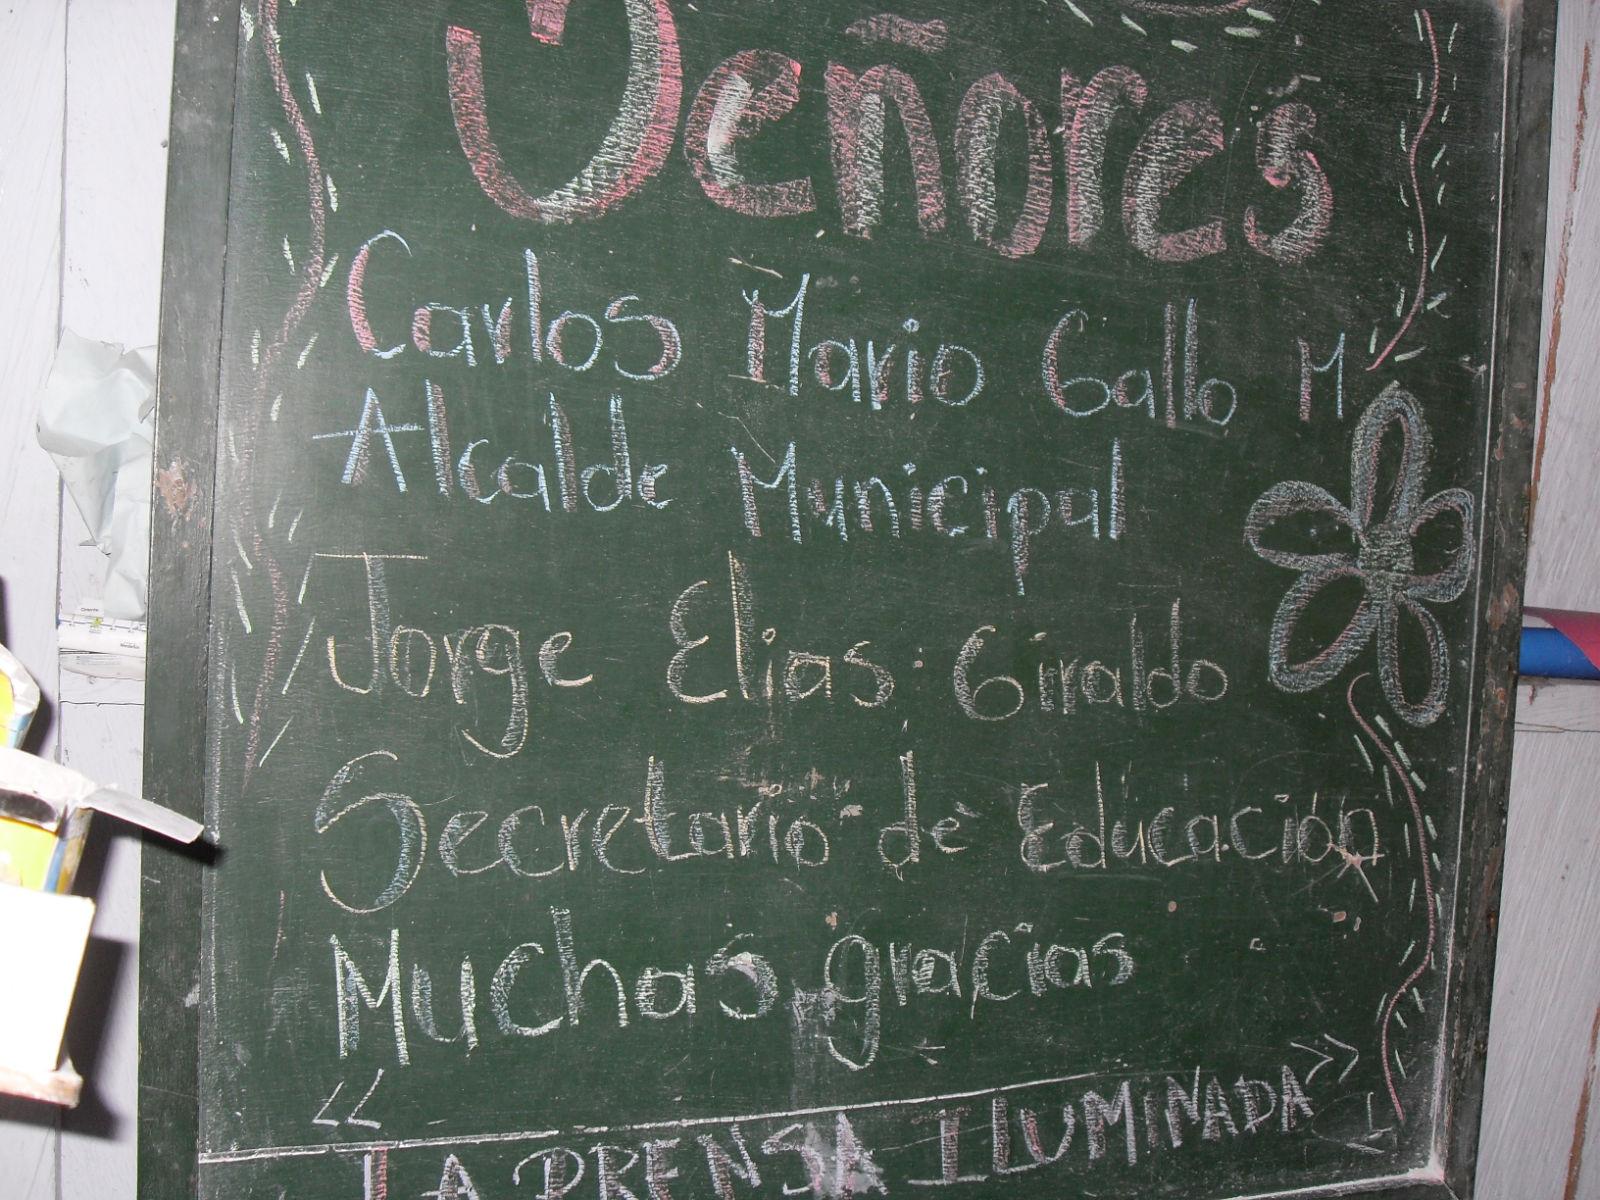 Señores
Carlos Mario Gallo M
Alcalde Municipal
Jorge Elias Giraldo
Secretario de Educación
Muchas gracias
<< >>
LA PRENSA ILUMINADA